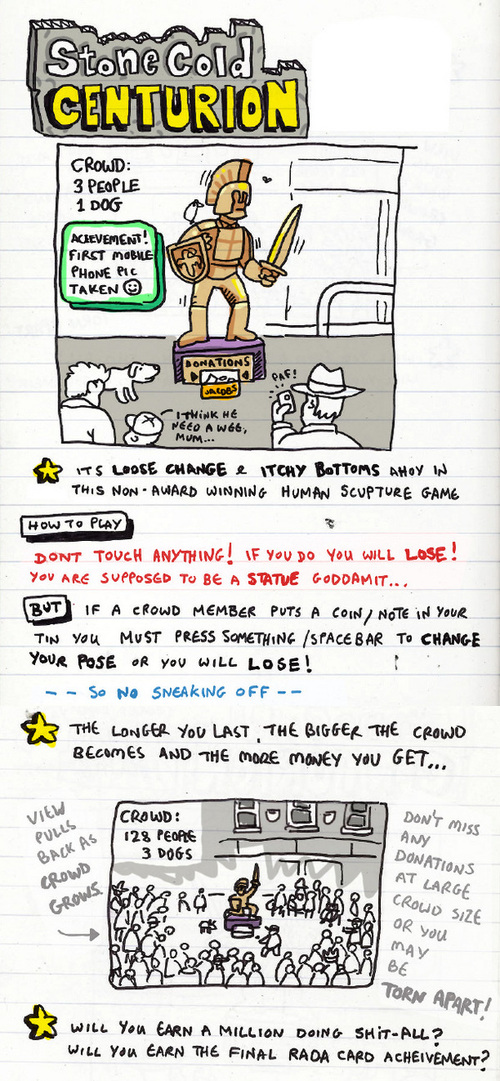 Stone Cold
CENTURION
CROWD:
3 PEOPLE
1 DOG
ACHIEVEMENT!
FIRST MOBILE
PHONE PIC
TAKEN
DONATIONS
JACOBS
PAF!
I THINK HE
NEED A WEE,
MUM...
ITS LOOSE CHANGE & ITCHY BOTTOMS AHOY IN
THIS NON-AWARD WINNING HUMAN SCUPTURE GAME
HOW TO PLAY
DONT TOUCH ANYTHING! IF YOU DO YOU WILL LOSE!
YOU ARE SUPPOSED TO BE A STATUE GODDAMIT...
BUT IF A CROWD MEMBER PUTS A COIN/NOTE IN YOUR
TIN YOU MUST PRESS SOMETHING/SPACEBAR TO CHANGE
YOUR POSE OR YOU WILL LOSE!
-- SO NO SNEAKING OFF --
THE LONGER YOU LAST, THE BIGGER THE CROWD
BECOMES AND THE MORE MONEY YOU GET...
VIEW
PULLS
BACK AS
CROWD
GROWS.
CROWD:
128 PEOPLE
3 DOGS
DON'T MISS
ANY
DONATIONS
AT LARGE
CROWD SIZE
OR YOU
MAY
BE
TORN APART!
WILL YOU EARN A MILLION DOING SHIT-ALL?
WILL YOU EARN THE FINAL RADA CARD ACHEIVEMENT?